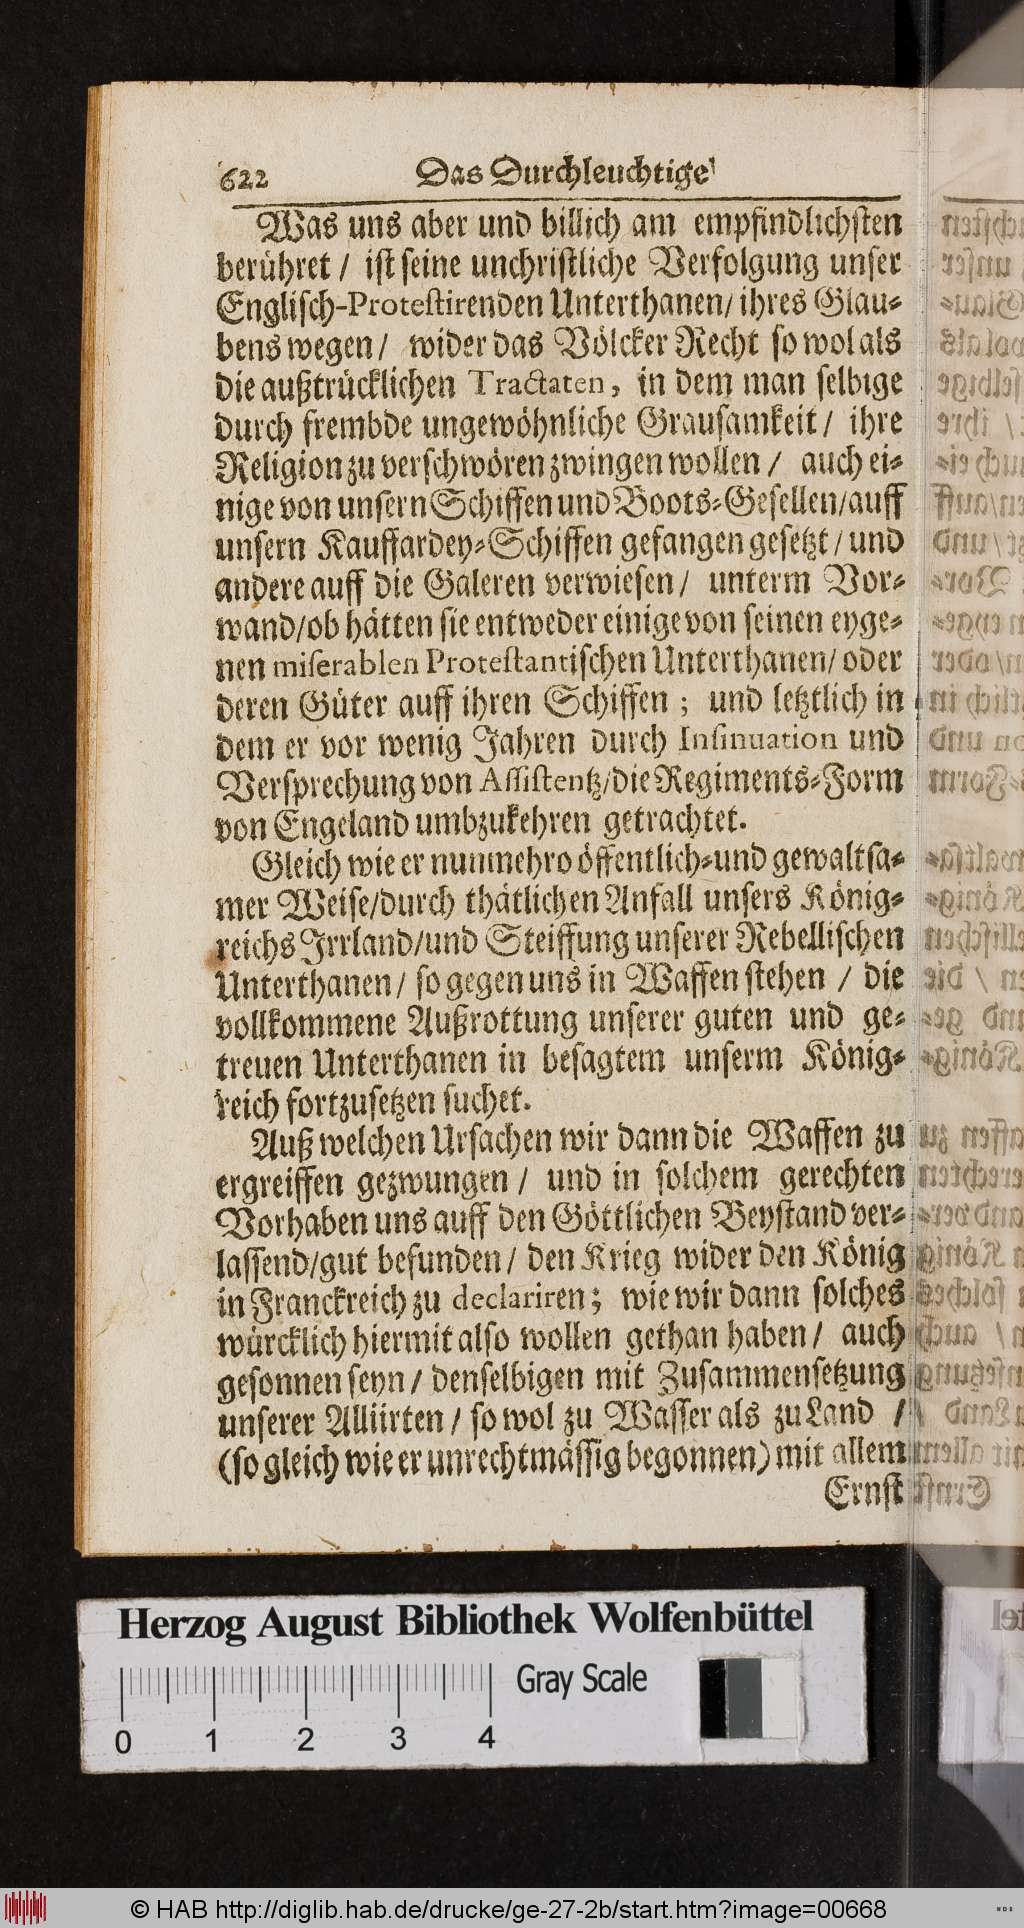 622 Das Durchleuchtige
Was uns aber und billich am empfindlichsten
berühret / ist seine unchristliche Verfolgung unser
Englisch-Protestirenden Unterthanen/ ihres Glau-
bens wegen / wider das Völcker Recht so wol als
die außtrücklichen Tractaten, in dem man selbige
durch frembde ungewöhnliche Grausamkeit / ihre
Religion zu verschwören zwingen wollen / auch ei-
nige von unsern Schiffen und Boots-Gesellen/auff
unsern Kauffardey-Schiffen gefangen gesetzt / und
andere auff die Galeren verwiesen / unterm Vor-
wand/ob hätten sie entweder einige von seinen eyge-
nen miserablen Protestantischen Unterthanen/ oder
deren Güter auff ihren Schiffen ; und letztlich in
dem er vor wenig Jahren durch Insinuation und
Versprechung von Assistentz/die Regiments-Form
von Engeland umbzukehren getrachtet.
Gleich wie er nunmehro öffentlich-und gewaltsa-
mer Weise/durch thätlichen Anfall unsers König-
reichs Irrland/und Steiffung unserer Rebellischen
Unterthanen / so gegen uns in Waffen stehen / die
vollkommene Außrottung unserer guten und ge-
treuen Unterthanen in besagtem unserm König-
reich fortzusetzen suchet.
Auß welchen Ursachen wir dann die Waffen zu
ergreiffen gezwungen / und in solchem gerechten
Vorhaben uns auff den Göttlichen Beystand ver-
lassend/gut befunden / den Krieg wider den König
in Franckreich zu declariren; wie wir dann solches
würcklich hiermit also wollen gethan haben / auch
gesonnen seyn / denselbigen mit Zusammensetzung
unserer Alliirten / so wol zu Wasser als zu Land /
(so gleich wie er unrechtmässig begonnen) mit allem
Ernst
Herzog August Bibliothek Wolfenbüttel
Gray Scale
0 1 2 3 4
© HAB http://diglib.hab.de/drucke/ge-27-2b/start.htm?image=00668